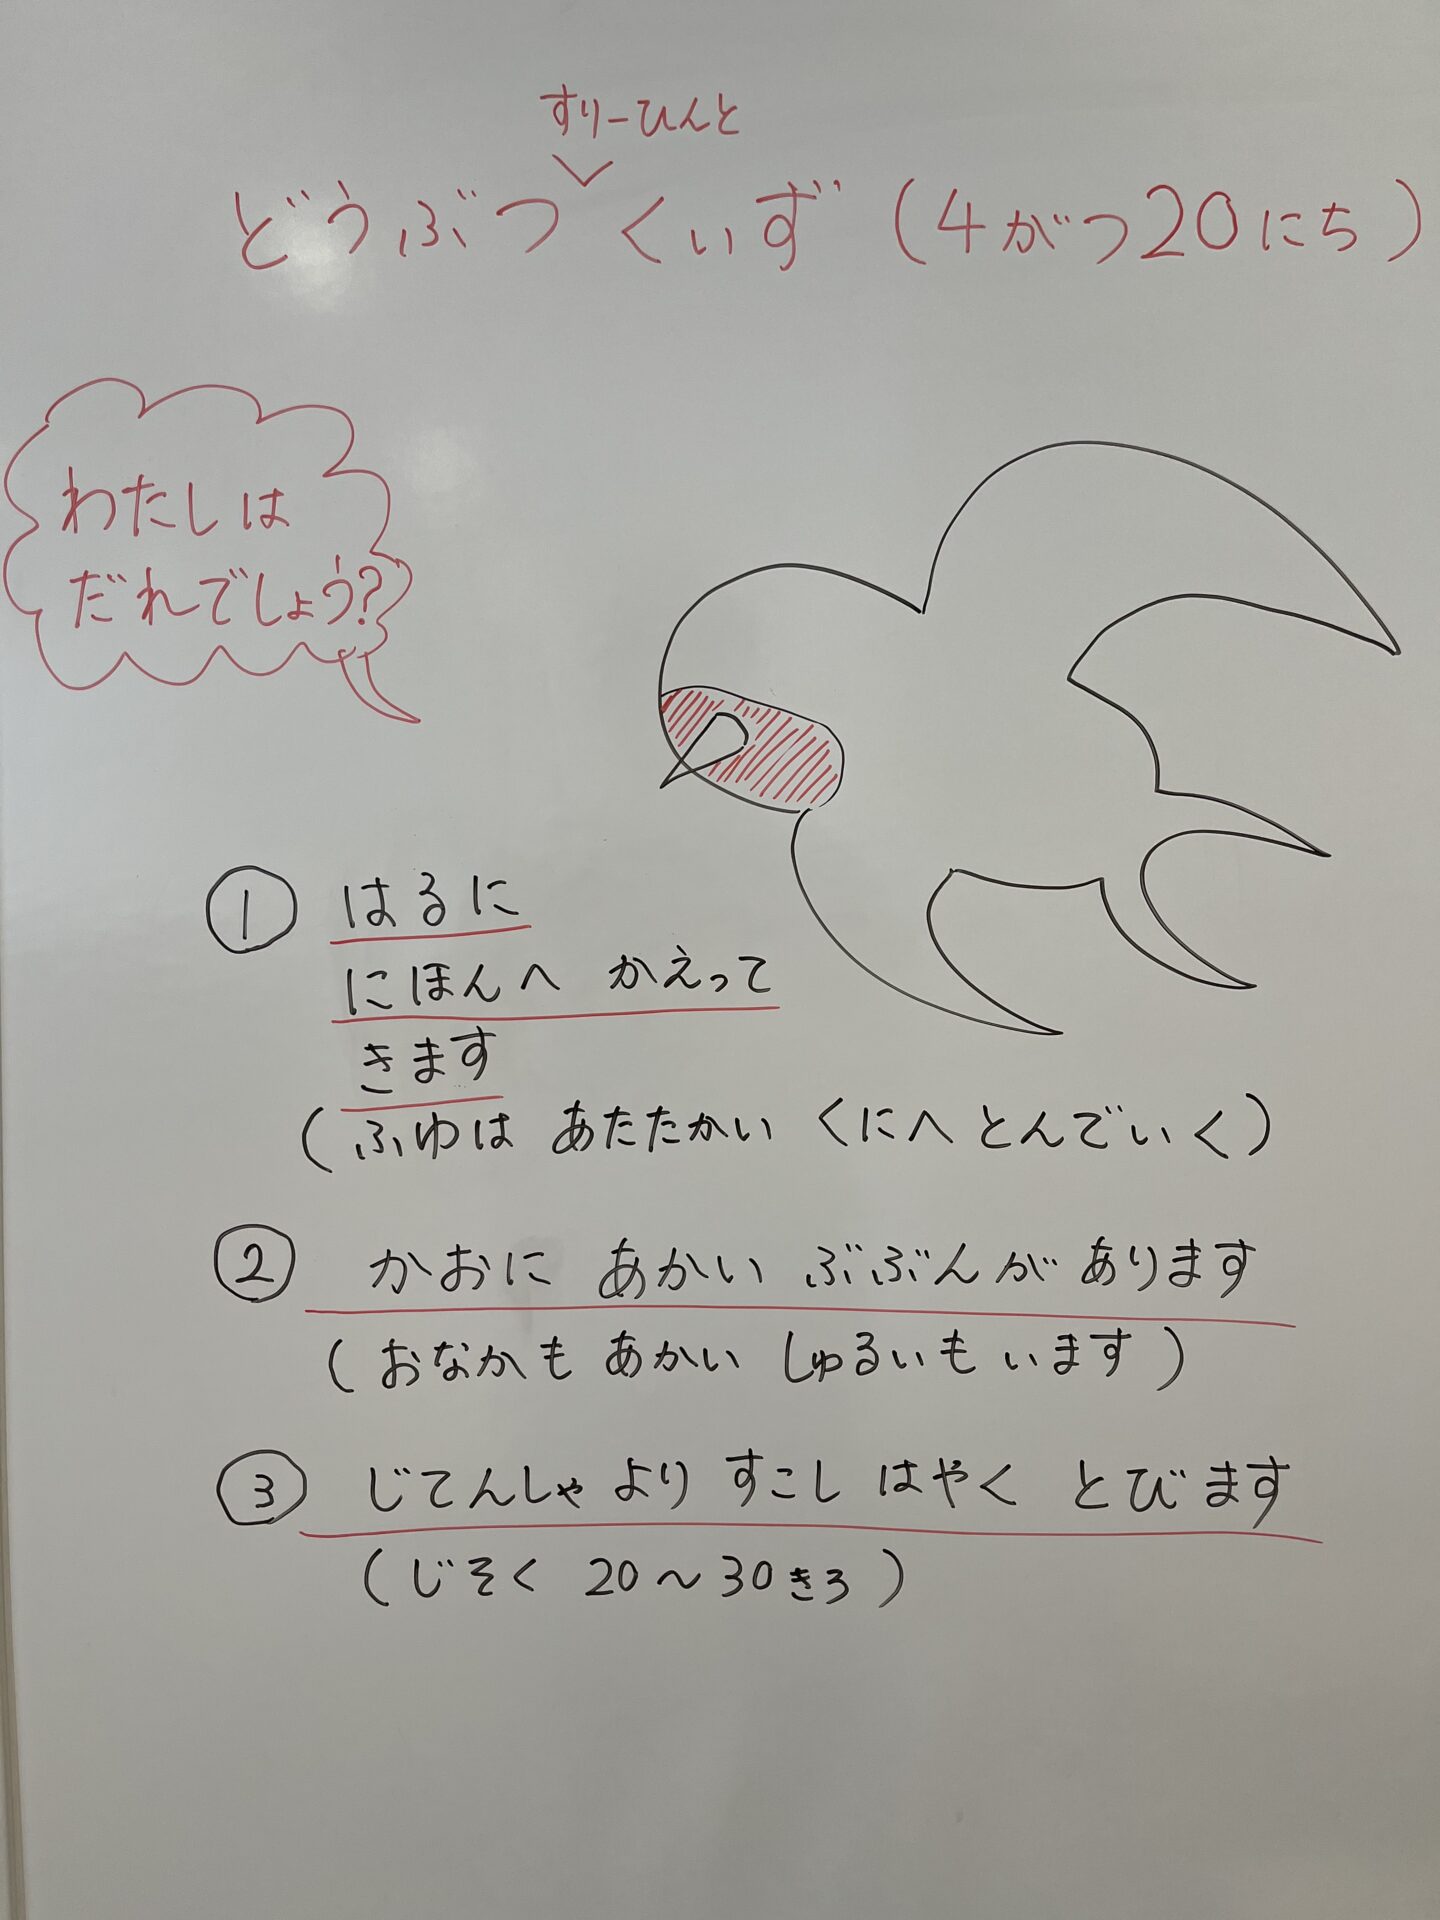 すりーひんと
どうぶつくいず（4がつ20にち）
わたしは
だれでしょう?
① はるに
にほんへ かえって
きます
（ふゆは あたたかい くにへ とんでいく）
② かおに あかい ぶぶんが あります
（おなかも あかい しゅるいも います）
③ じてんしゃより すこし はやく とびます
（じそく 20〜30きろ）